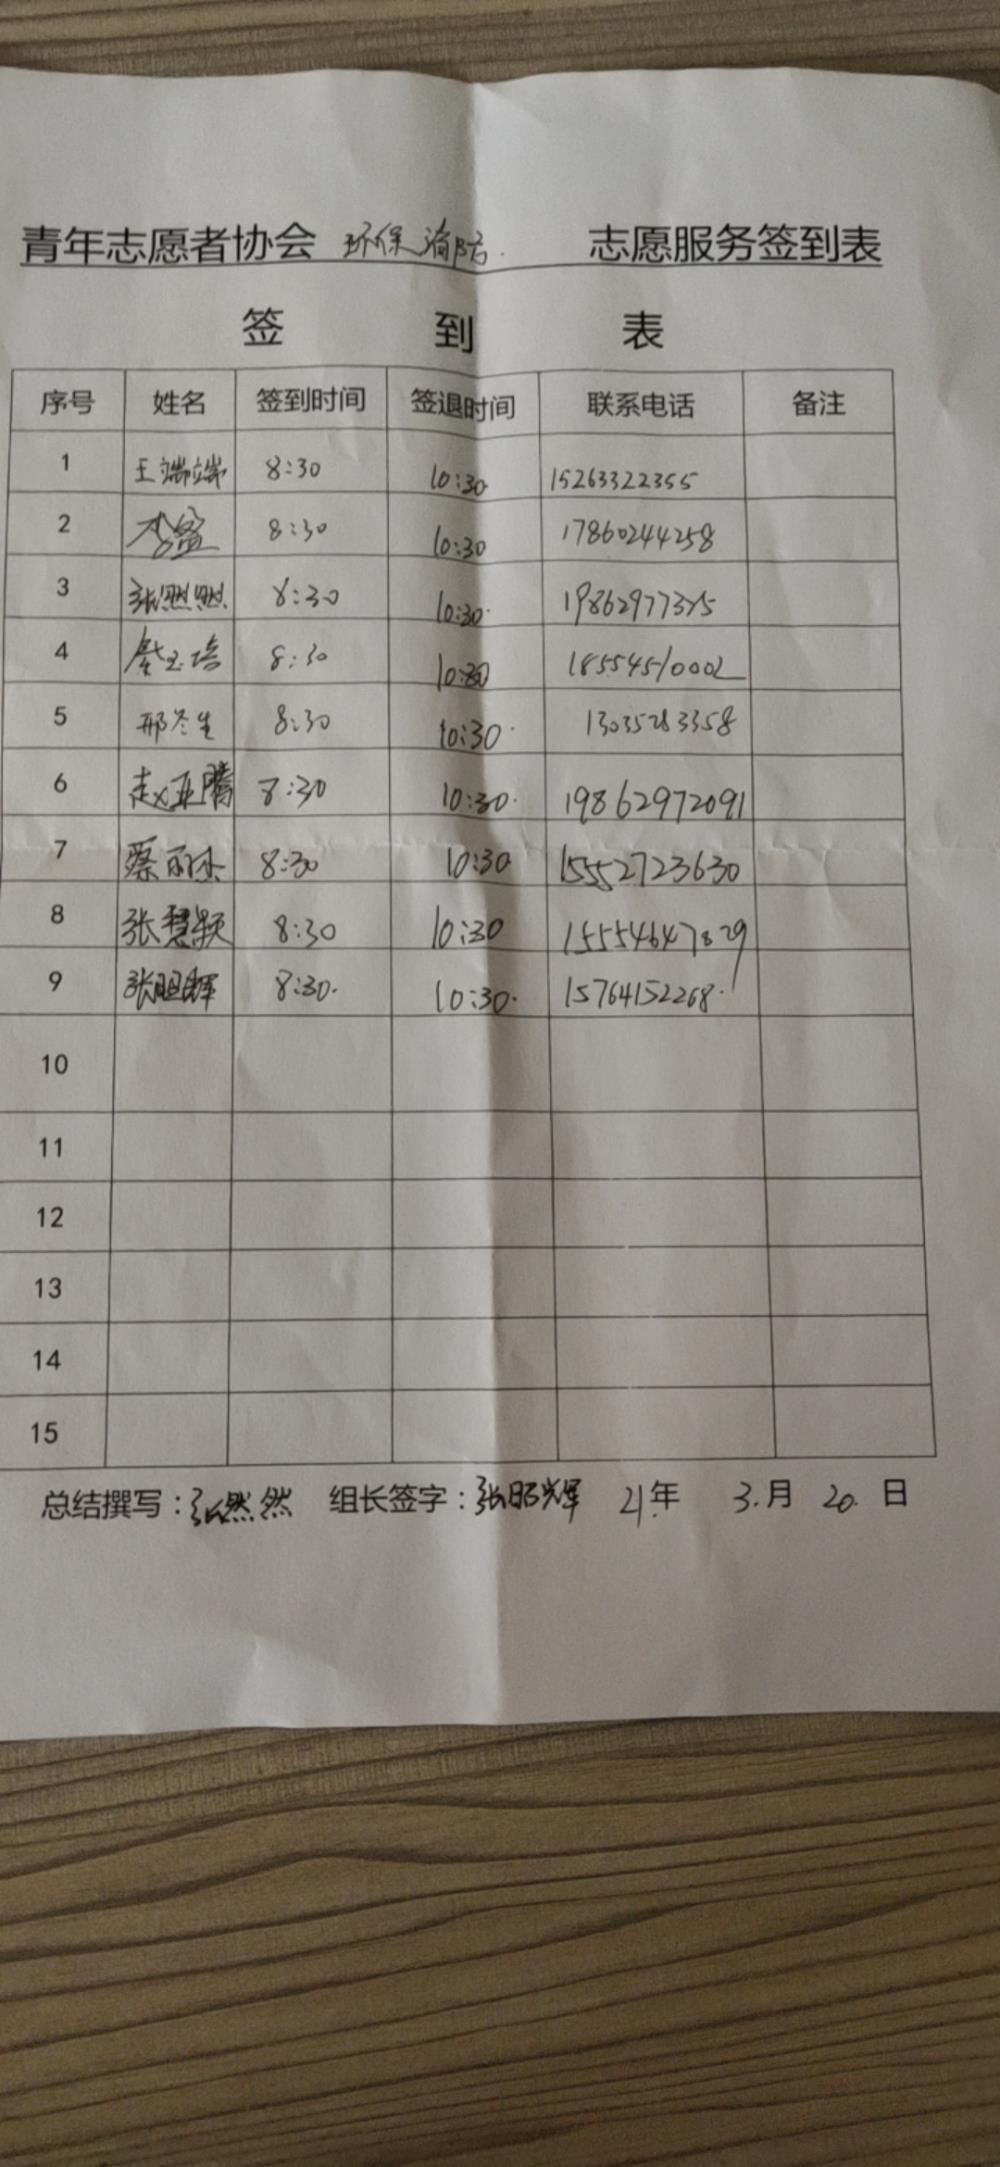 青年志愿者协会 环保消防 志愿服务签到表
签 到 表
序号 姓名 签到时间 签退时间 联系电话 备注
1 王端端 8:30 10:30 15263322355
2 8:30 10:30 17860244258
3 张燃燃 8:30 10:30
4 8:30 10:30 18554510002
5 邢冬生 8:30 10:30 13035283358
6 赵亚腾 8:30 10:30 19862972091
7 蔡丽杰 8:30 10:30 15552723630
8 张慧颖 8:30 10:30 15554647829
9 张昭辉 8:30 10:30 15764152268
10
11
12
13
14
15
总结撰写：张然然 组长签字：张昭辉 21年 3.月 20.日